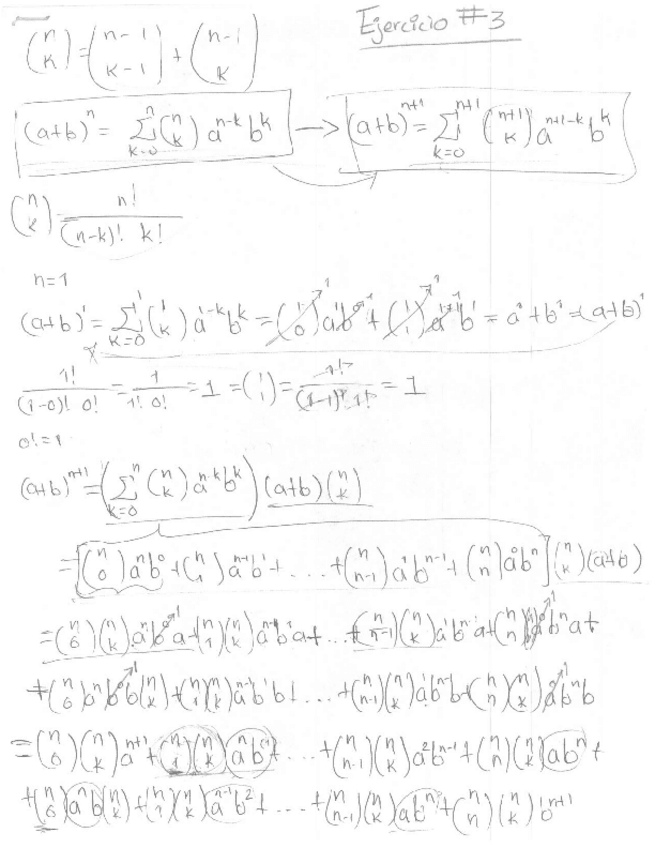 Ejercicio #3
(n k) = (n-1 k-1) + (n-1 k)
(a+b)^n = Σ_{k=0}^{n} (n k) a^{n-k} b^k → (a+b)^{n+1} = Σ_{k=0}^{n+1} (n+1 k) a^{n+1-k} b^k
(n k) = n! / (n-k)! k!
n=1
(a+b)^1 = Σ_{k=0}^{1} (1 k) a^{1-k} b^k = (1 0) a^1 b^0 + (1 1) a^{1-1} b^1 = a^1 + b^1 = (a+b)^1
1! / (1-0)! 0! = 1 / 1! 0! = 1 = (1 1) = 1! / (1-1)! 1! = 1
0! = 1
(a+b)^{n+1} = (Σ_{k=0}^{n} (n k) a^{n-k} b^k) (a+b) (n k)
= [(n 0) a^n b^0 + (n 1) a^{n-1} b^1 + ... + (n n-1) a^1 b^{n-1} + (n n) a^0 b^n] (n k) (a+b)
= (n 0)(n k) a^n b^0 a + (n 1)(n k) a^{n-1} b^1 a + ... + (n n-1)(n k) a^1 b^{n-1} a + (n n)(n k) a^0 b^n a +
+ (n 0) b^n b^0 b (n k) + (n 1)(n k) a^{n-1} b^1 b + ... + (n n-1)(n k) a^1 b^{n-1} b + (n n)(n k) a^0 b^n b
= (n 0)(n k) a^{n+1} + (n 1)(n k) a^n b + ... + (n n-1)(n k) a^2 b^{n-1} + (n n)(n k) a b^n +
+ (n 0) a^n b (n k) + (n 1)(n k) a^{n-1} b^2 + ... + (n n-1)(n k) a b^n + (n n)(n k) b^{n+1}